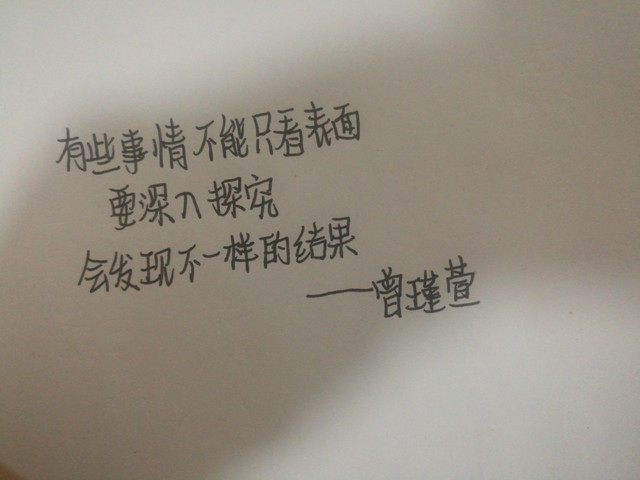 有些事情不能只看表面
要深入探究
会发现不一样的结果
——曾瑾萱